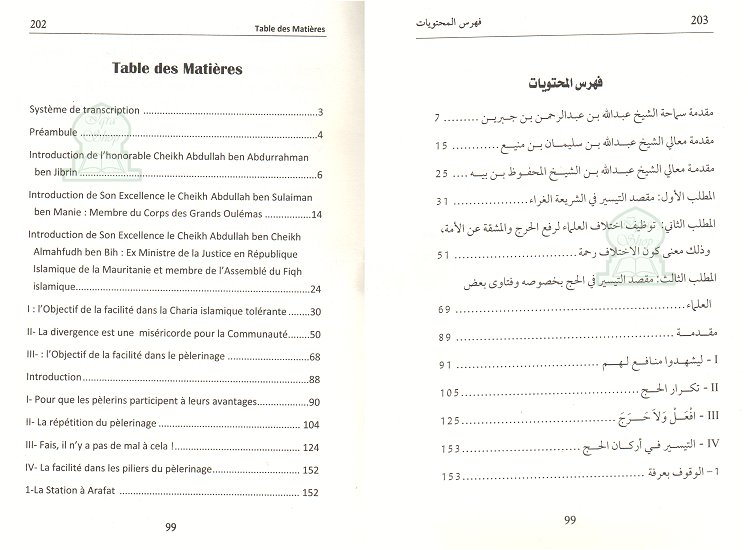 202
Table des Matières
Table des Matières
Système de transcription ........................................................3
Préambule ..............................................................................4
Introduction de l'honorable Cheikh Abdullah ben Abdurrahman
ben Jibrin ................................................................................6
Introduction de Son Excellence le Cheikh Abdullah ben Sulaiman
ben Manie : Membre du Corps des Grands Oulémas ..................14
Introduction de Son Excellence le Cheikh Abdullah ben Cheikh
Almahfudh ben Bih : Ex Ministre de la Justice en République
Islamique de la Mauritanie et membre de l'Assemblé du Fiqh
islamique.................................................................................24
I : l'Objectif de la facilité dans la Charia islamique tolérante ......30
II- La divergence est une miséricorde pour la Communauté.......50
III- : l'Objectif de la facilité dans le pèlerinage .........................68
Introduction............................................................................88
I- Pour que les pèlerins participent à leurs avantages................90
II- La répétition du pèlerinage .................................................. 104
III- Fais, il n'y a pas de mal à cela !............................................124
IV- La facilité dans les piliers du pèlerinage...............................152
1-La Station à Arafat ................................................................. 152
99
فهرس المحتويات
203
فهرس المحتويات
مقدمة سماحة الشيخ عبدالله بن عبدالرحمن بن جبرين ......... 7
مقدمة معالي الشيخ عبدالله بن سليمان بن منيع ................ 15
مقدمة معالي الشيخ عبدالله بن الشيخ المحفوظ بن بيه .... 25
المطلب الأول: مقصد التيسير في الشريعة الغراء ................ 31
المطلب الثاني: توظيف اختلاف العلماء لرفع الحرج والمشقة عن الأمة،
وذلك معنى كون الاختلاف رحمة ............................ 51
المطلب الثالث: مقصد التيسير في الحج بخصوصه وفتاوى بعض
العلماء...................................................... 69
مقدمة ..................................................... 89
I - ليشهدوا منافع لهم ..................................... 91
II - تكرار الحج ........................................... 105
III - افْعَلْ وَلاَ حَرَجَ ....................................... 125
IV - التيسير في أركان الحج .............................. 153
1- الوقوف بعرفة ........................................... 153
99